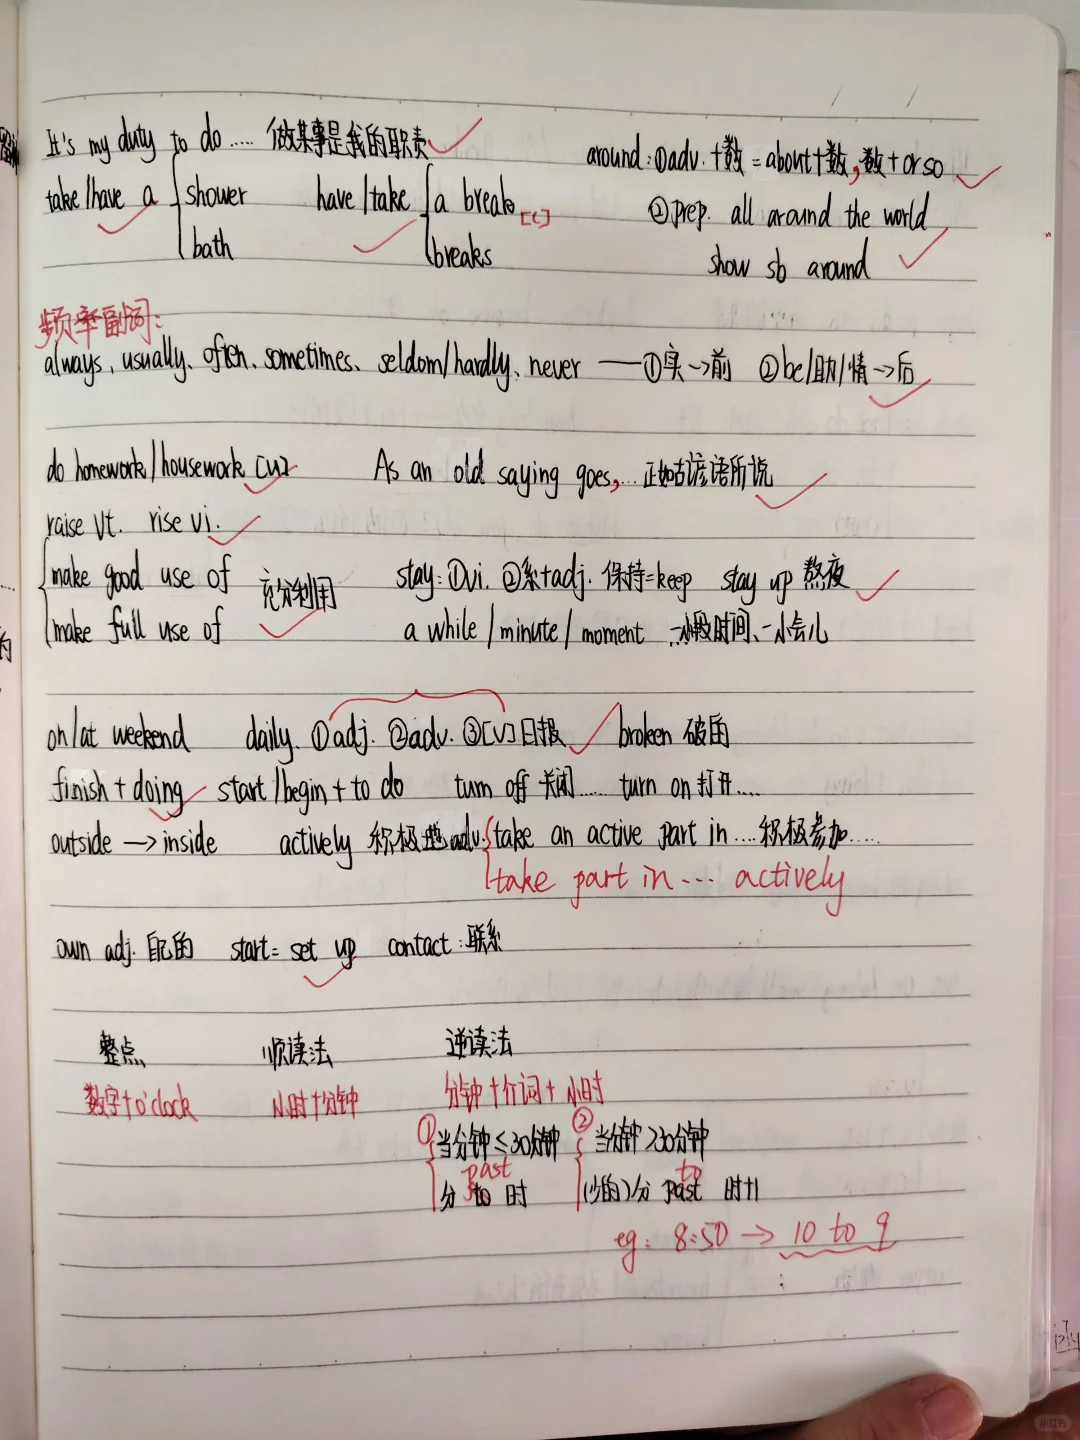 It's my duty to do ..... 做某事是我的职责
around: ①adv. +数 = about+数, 数+or so
take/have a { shower
bath
have/take { a break [C]
breaks
②prep. all around the world
show sb around
频率副词:
always, usually, often, sometimes, seldom/hardly, never ——①实→前 ②be/助/情→后
do homework/housework [U]
As an old saying goes, ... 正如古谚语所说
raise vt. rise vi.
{ make good use of
make full use of
充分利用
stay: ①vi. ②系+adj. 保持=keep stay up 熬夜
a while/minute/moment 一小段时间、一小会儿
on/at weekend daily. ①adj. ②adv. ③[V]日报 broken 破的
finish + doing start/begin + to do turn off 关闭..... turn on 打开....
outside → inside actively 积极地adv. { take an active part in .... 积极参加.....
take part in ... actively
own adj. 自己的 start = set up contact: 联系
整点 顺读法 逆读法
数字+o'clock 小时+分钟 分钟+介词+小时
① { 当分钟≤30分钟
past
分 to 时
② { 当分钟>30分钟
to
(少的)分 past 时+1
eg: 8:50 → 10 to 9